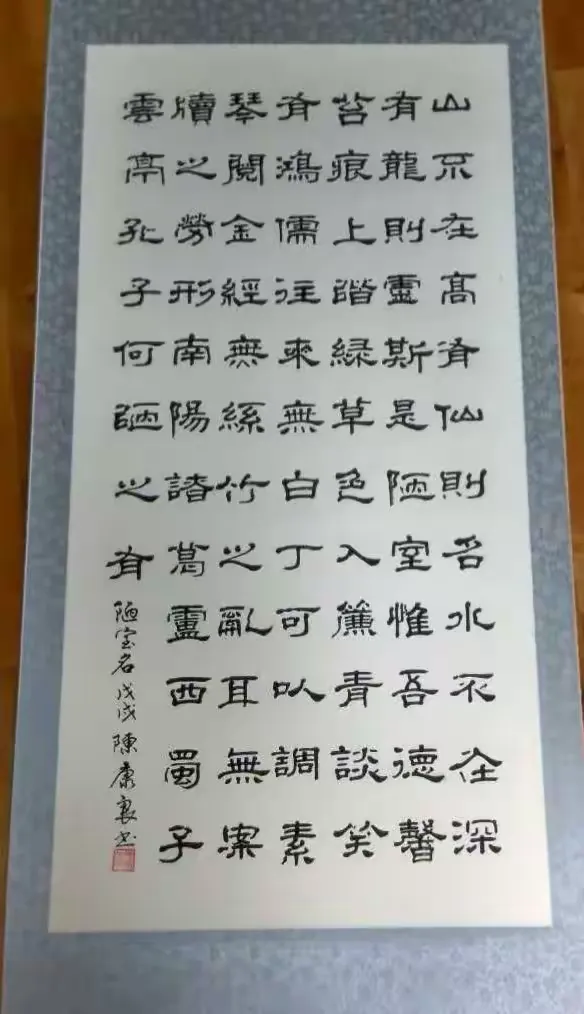 山不在高有仙則名水不在深
有龍則靈斯是陋室惟吾德馨
苔痕上階綠草色入簾青談笑
有鴻儒往來無白丁可以調素
琴閱金經無絲竹之亂耳無案
牘之勞形南陽諸葛靈西蜀子
雲亭孔子何陋之有
陋室名戊戌陳康書